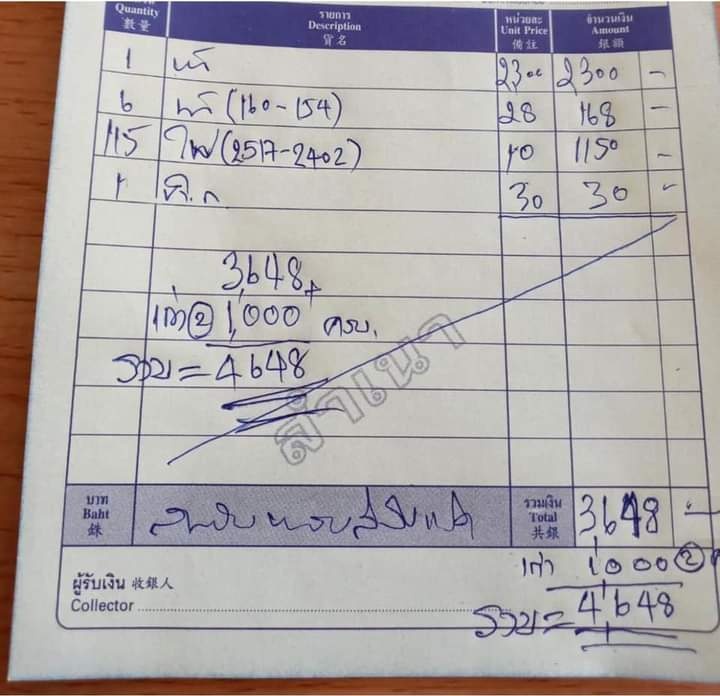 Quantity รายการ หน่วยละ จำนวนเงิน
數量 Description Unit Price Amount
貨名 備註 銀額
1 2300 2300 -
6 (160-154) 28 168 -
115 ไฟ (2517-2402) 10 1150 -
1 30 30 -
3648 +
เก่า ② 1,000 ครบ.
รวม = 4648
สำเนา
บาท รวมเงิน
Baht Total 3648 -
銖 共銀
เก่า 1000 ②
ผู้รับเงิน 收銀人
Collector
รวม = 4648